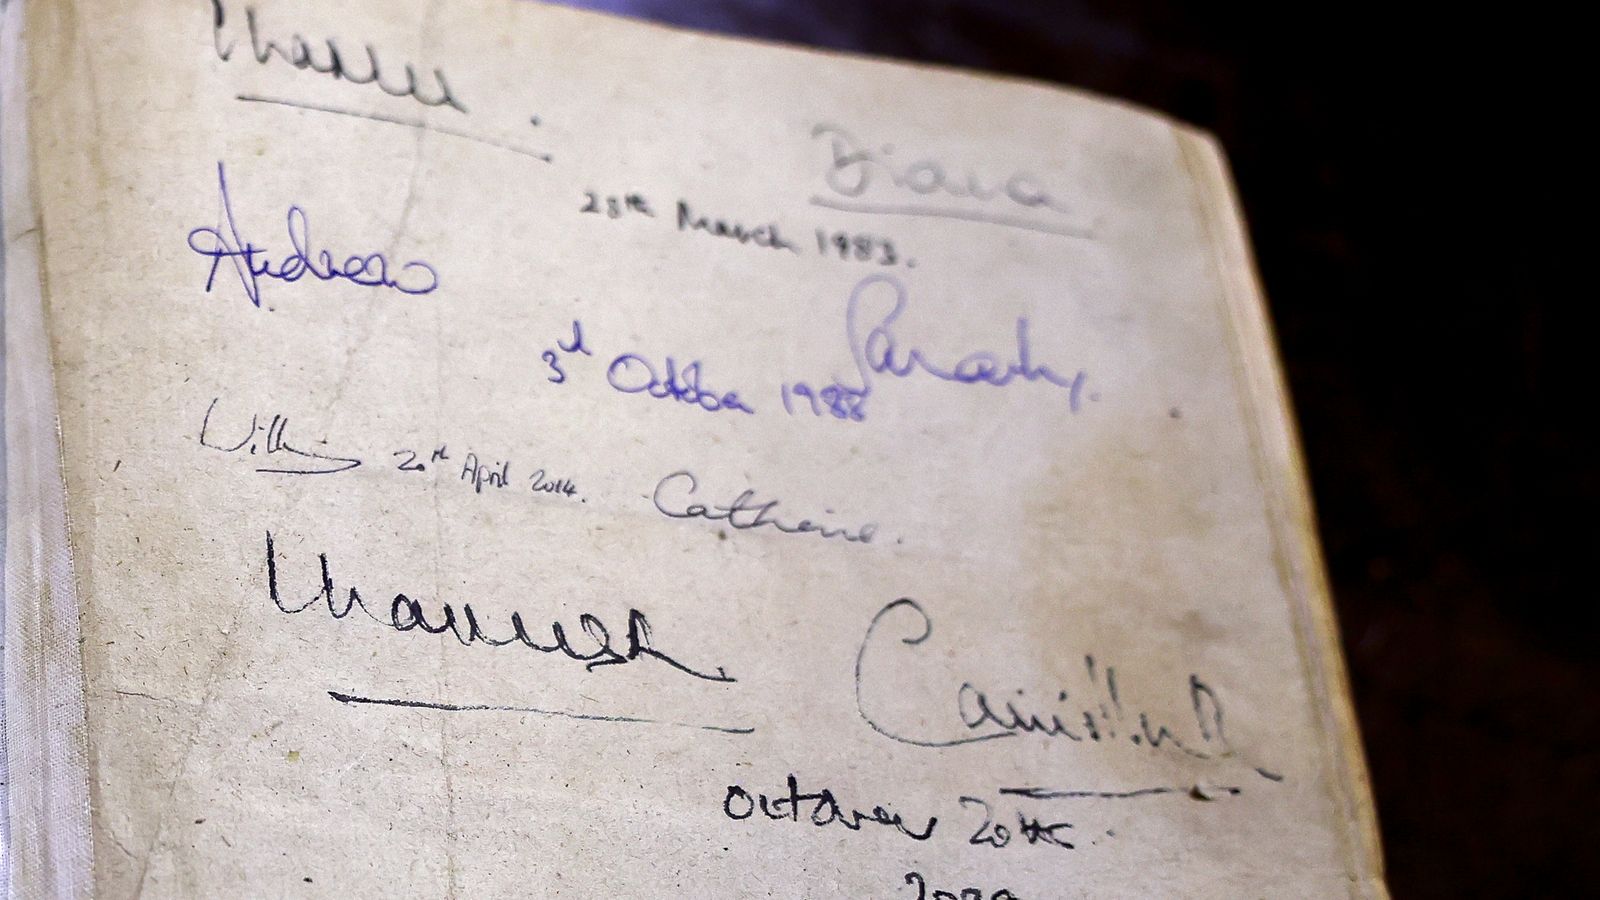 Charles.
Diana
28th March 1983.
Andrew
Sarah.
3rd October 1988
William 20th April 2014. Catherine.
Charles R.
Camilla R
October 20